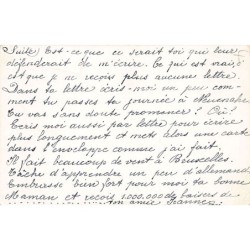 Suite) Est-ce que ce serait toi qui leur
défenderait de m'écrire. Ce qui est vrai, c'
est que je ne reçois plus aucune lettre.
Dans ta lettre écris-moi un peu com-
ment tu passes ta journée à
Tu vas sans doute promener? Où?
Ecris moi aussi par lettre pour écrire
plus longuement et mets alors une carte
dans l'enveloppe comme j'ai fait.
Il fait beaucoup de vent à Bruxelles.
Tâche d'apprendre un peu d'allemand.
Embrasse bien fort pour moi ta bonne
Maman et reçois 1000.000 de baisers de
ton amie